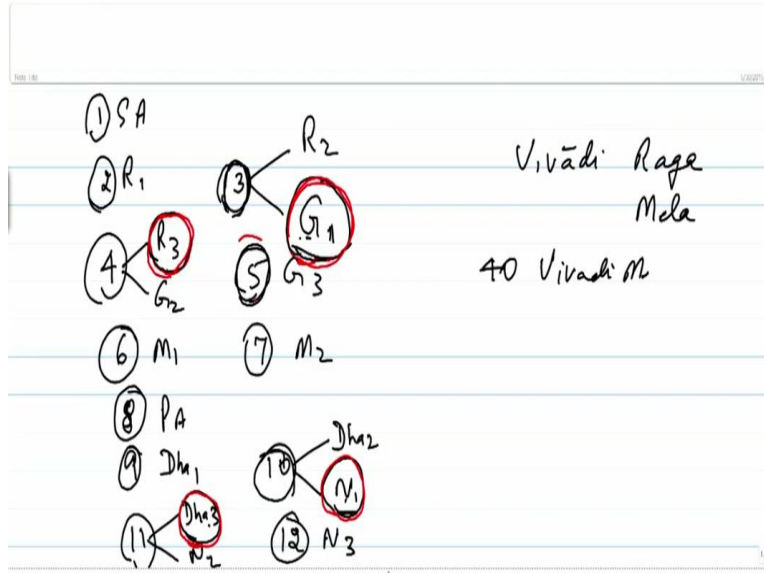 ① SA
② R1
③ R2
G1
④ R3
G2
⑤ G3
⑥ M1
⑦ M2
⑧ PA
⑨ Dha1
⑩ Dha2
N1
⑪ Dha3
N2
⑫ N3
Vivādi Raga
Mela
40 Vivadi M